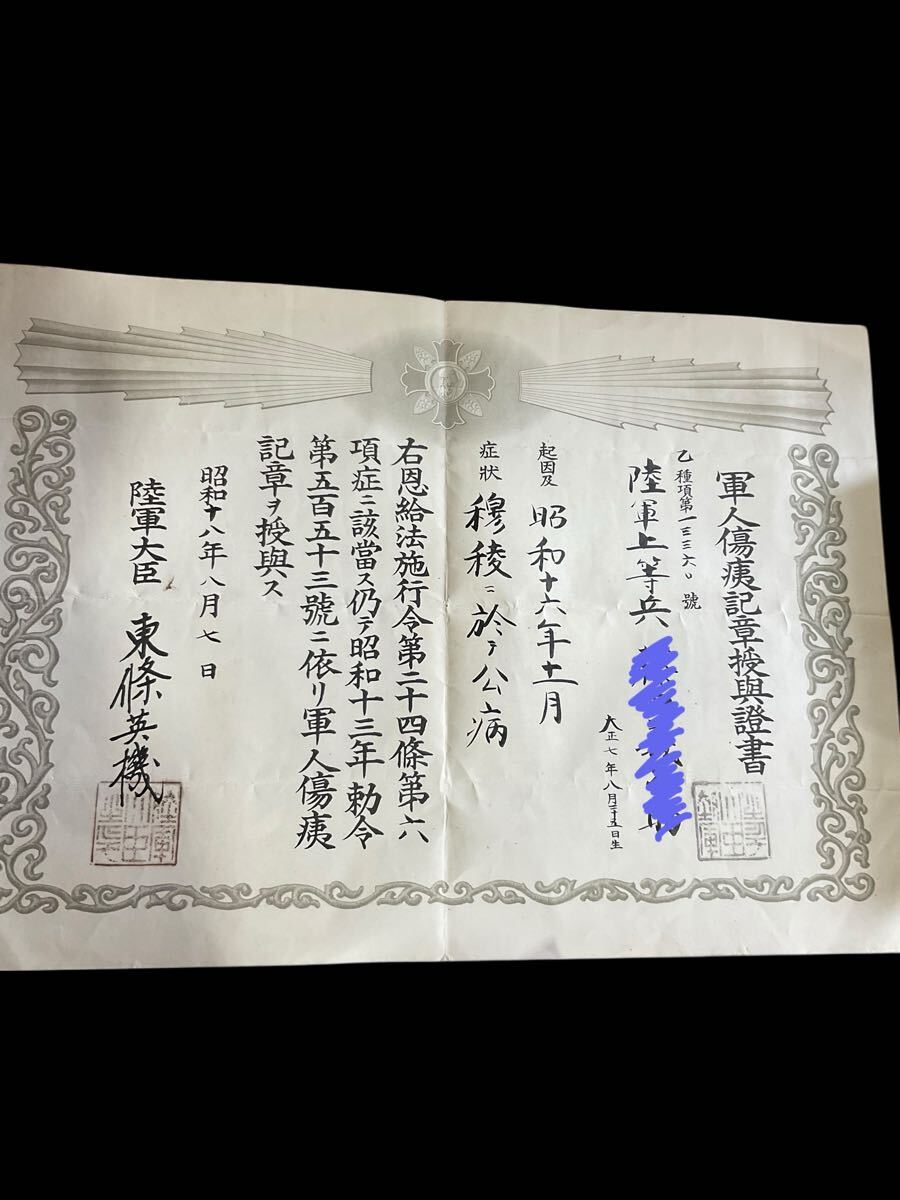 軍人傷痍記章授與證書
乙種項第一三三六〇號
陸軍上等兵
大正七年八月二十五日生
起因及
症狀
昭和十六年十一月
穆稜ニ於テ公病
右恩給法施行令第二十四條第六
項症ニ該當ス仍テ昭和十三年勅令
第五百五十三號ニ依リ軍人傷痍
記章ヲ授與ス
昭和十八年八月七日
陸軍大臣 東條英機